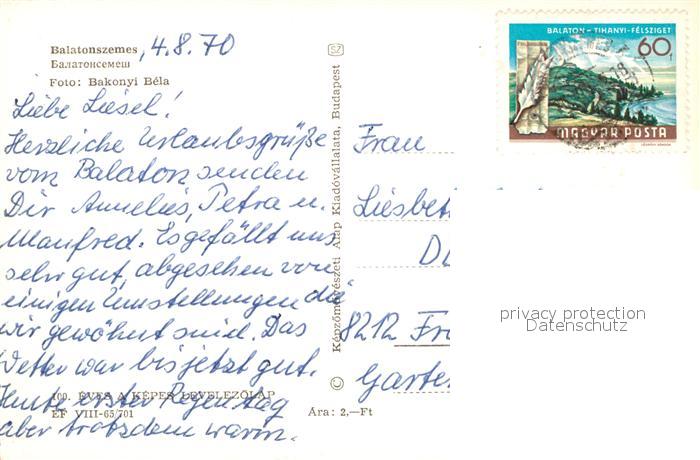 Balatonszemes , 4. 8. 70
Балатонсемеш
Foto: Bakonyi Béla
Liebe Liesel!
Herzliche Urlaubsgrüße
vom Balaton senden
Dir Annelies, Petra u.
Manfred. Es gefällt uns
sehr gut, abgesehen von
einigen Umstellungen die
wir gewöhnt sind. Das
Wetter war bis jetzt gut.
Heute erster Regentag
aber trotzdem warm.
100. ÉVES A KÉPES LEVELEZŐLAP
EF VIII-65/701
Ára: 2,—Ft
SZ
© Képzőművészeti Alap Kiadóvállalata, Budapest
BALATON - TIHANYI-FÉLSZIGET
60 f
MAGYAR POSTA
Frau
Liesbet
D
8212 Fr
Garte
privacy protection
Datenschutz